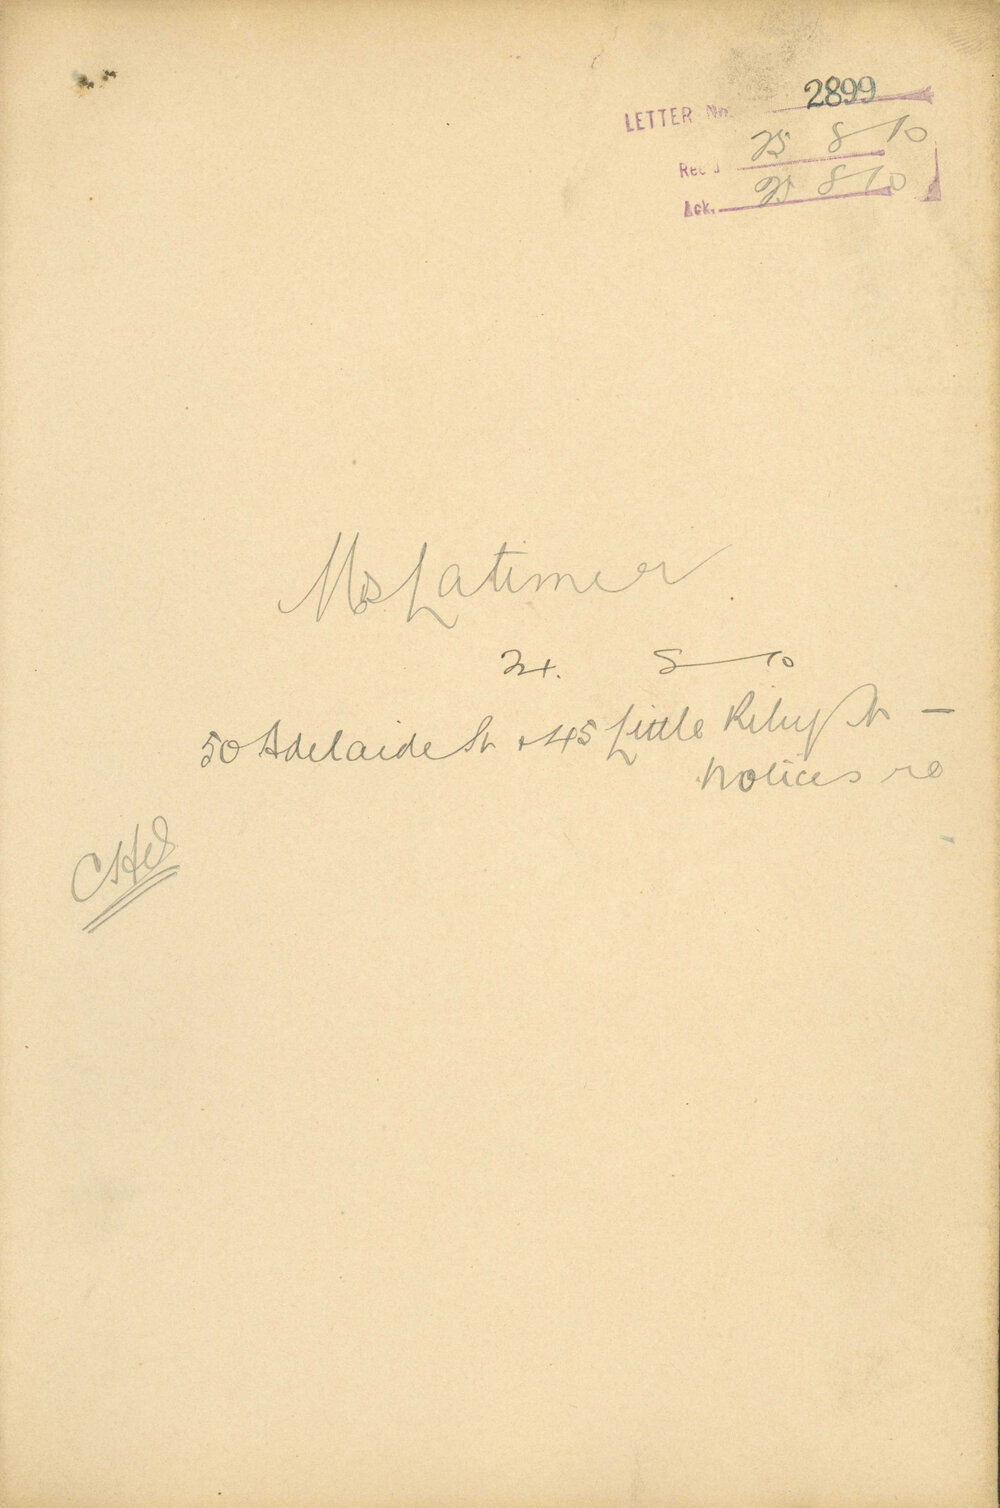 LETTER No. 2899
Rec'd 25 8 10
Ack. 25 8 10
Ms Latimer
24. 8 10
50 Adelaide St & 45 Little Riley St —
notices re